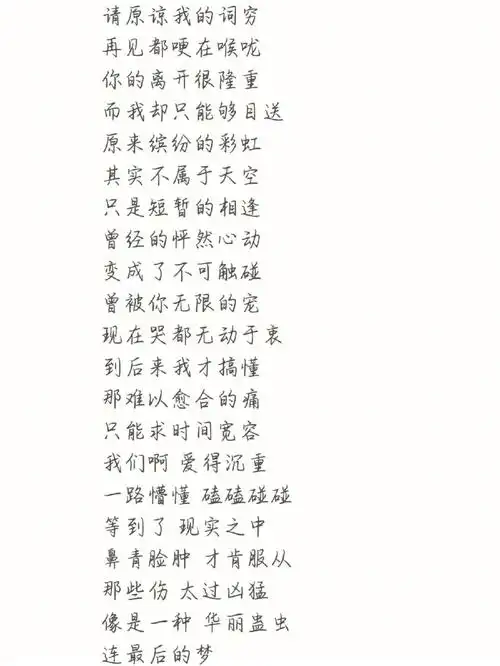 请原谅我的词穷
再见都哽在喉咙
你的离开很隆重
而我却只能够目送
原来缤纷的彩虹
其实不属于天空
只是短暂的相逢
曾经的怦然心动
变成了不可触碰
曾被你无限的宠
现在哭都无动于衷
到后来我才搞懂
那难以愈合的痛
只能求时间宽容
我们啊 爱得沉重
一路懵懂 磕磕碰碰
等到了 现实之中
鼻青脸肿 才肯服从
那些伤 太过凶猛
像是一种 华丽蛊虫
连最后的梦